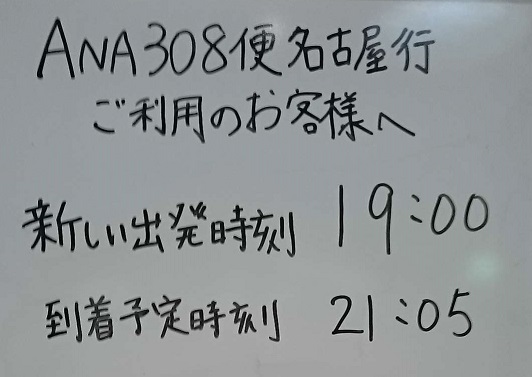 ANA308便名古屋行
ご利用のお客様へ
新しい出発時刻 19:00
到着予定時刻 21:05